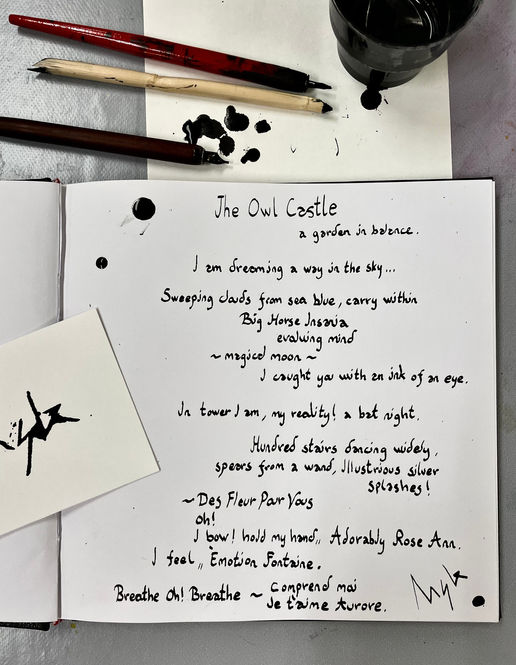 The Owl Castle
a garden in balance.
I am dreaming a way in the sky...
Sweeping clouds from sea blue, carry within
Big Horse Insania
evolving mind
~ magical moon ~
I caught you with an ink of an eye.
In tower I am, my reality! a bat night.
Hundred stairs dancing widely,
spears from a wand, Illustrious silver
splashes!
~ Des Fleur Pour Vous
Oh!
I bow! hold my hand,, Adorably Rose Ann.
I feel ,, Emotion Fontaine.
Breathe Oh! Breathe ~ comprend moi
Je t'aime Aurore.